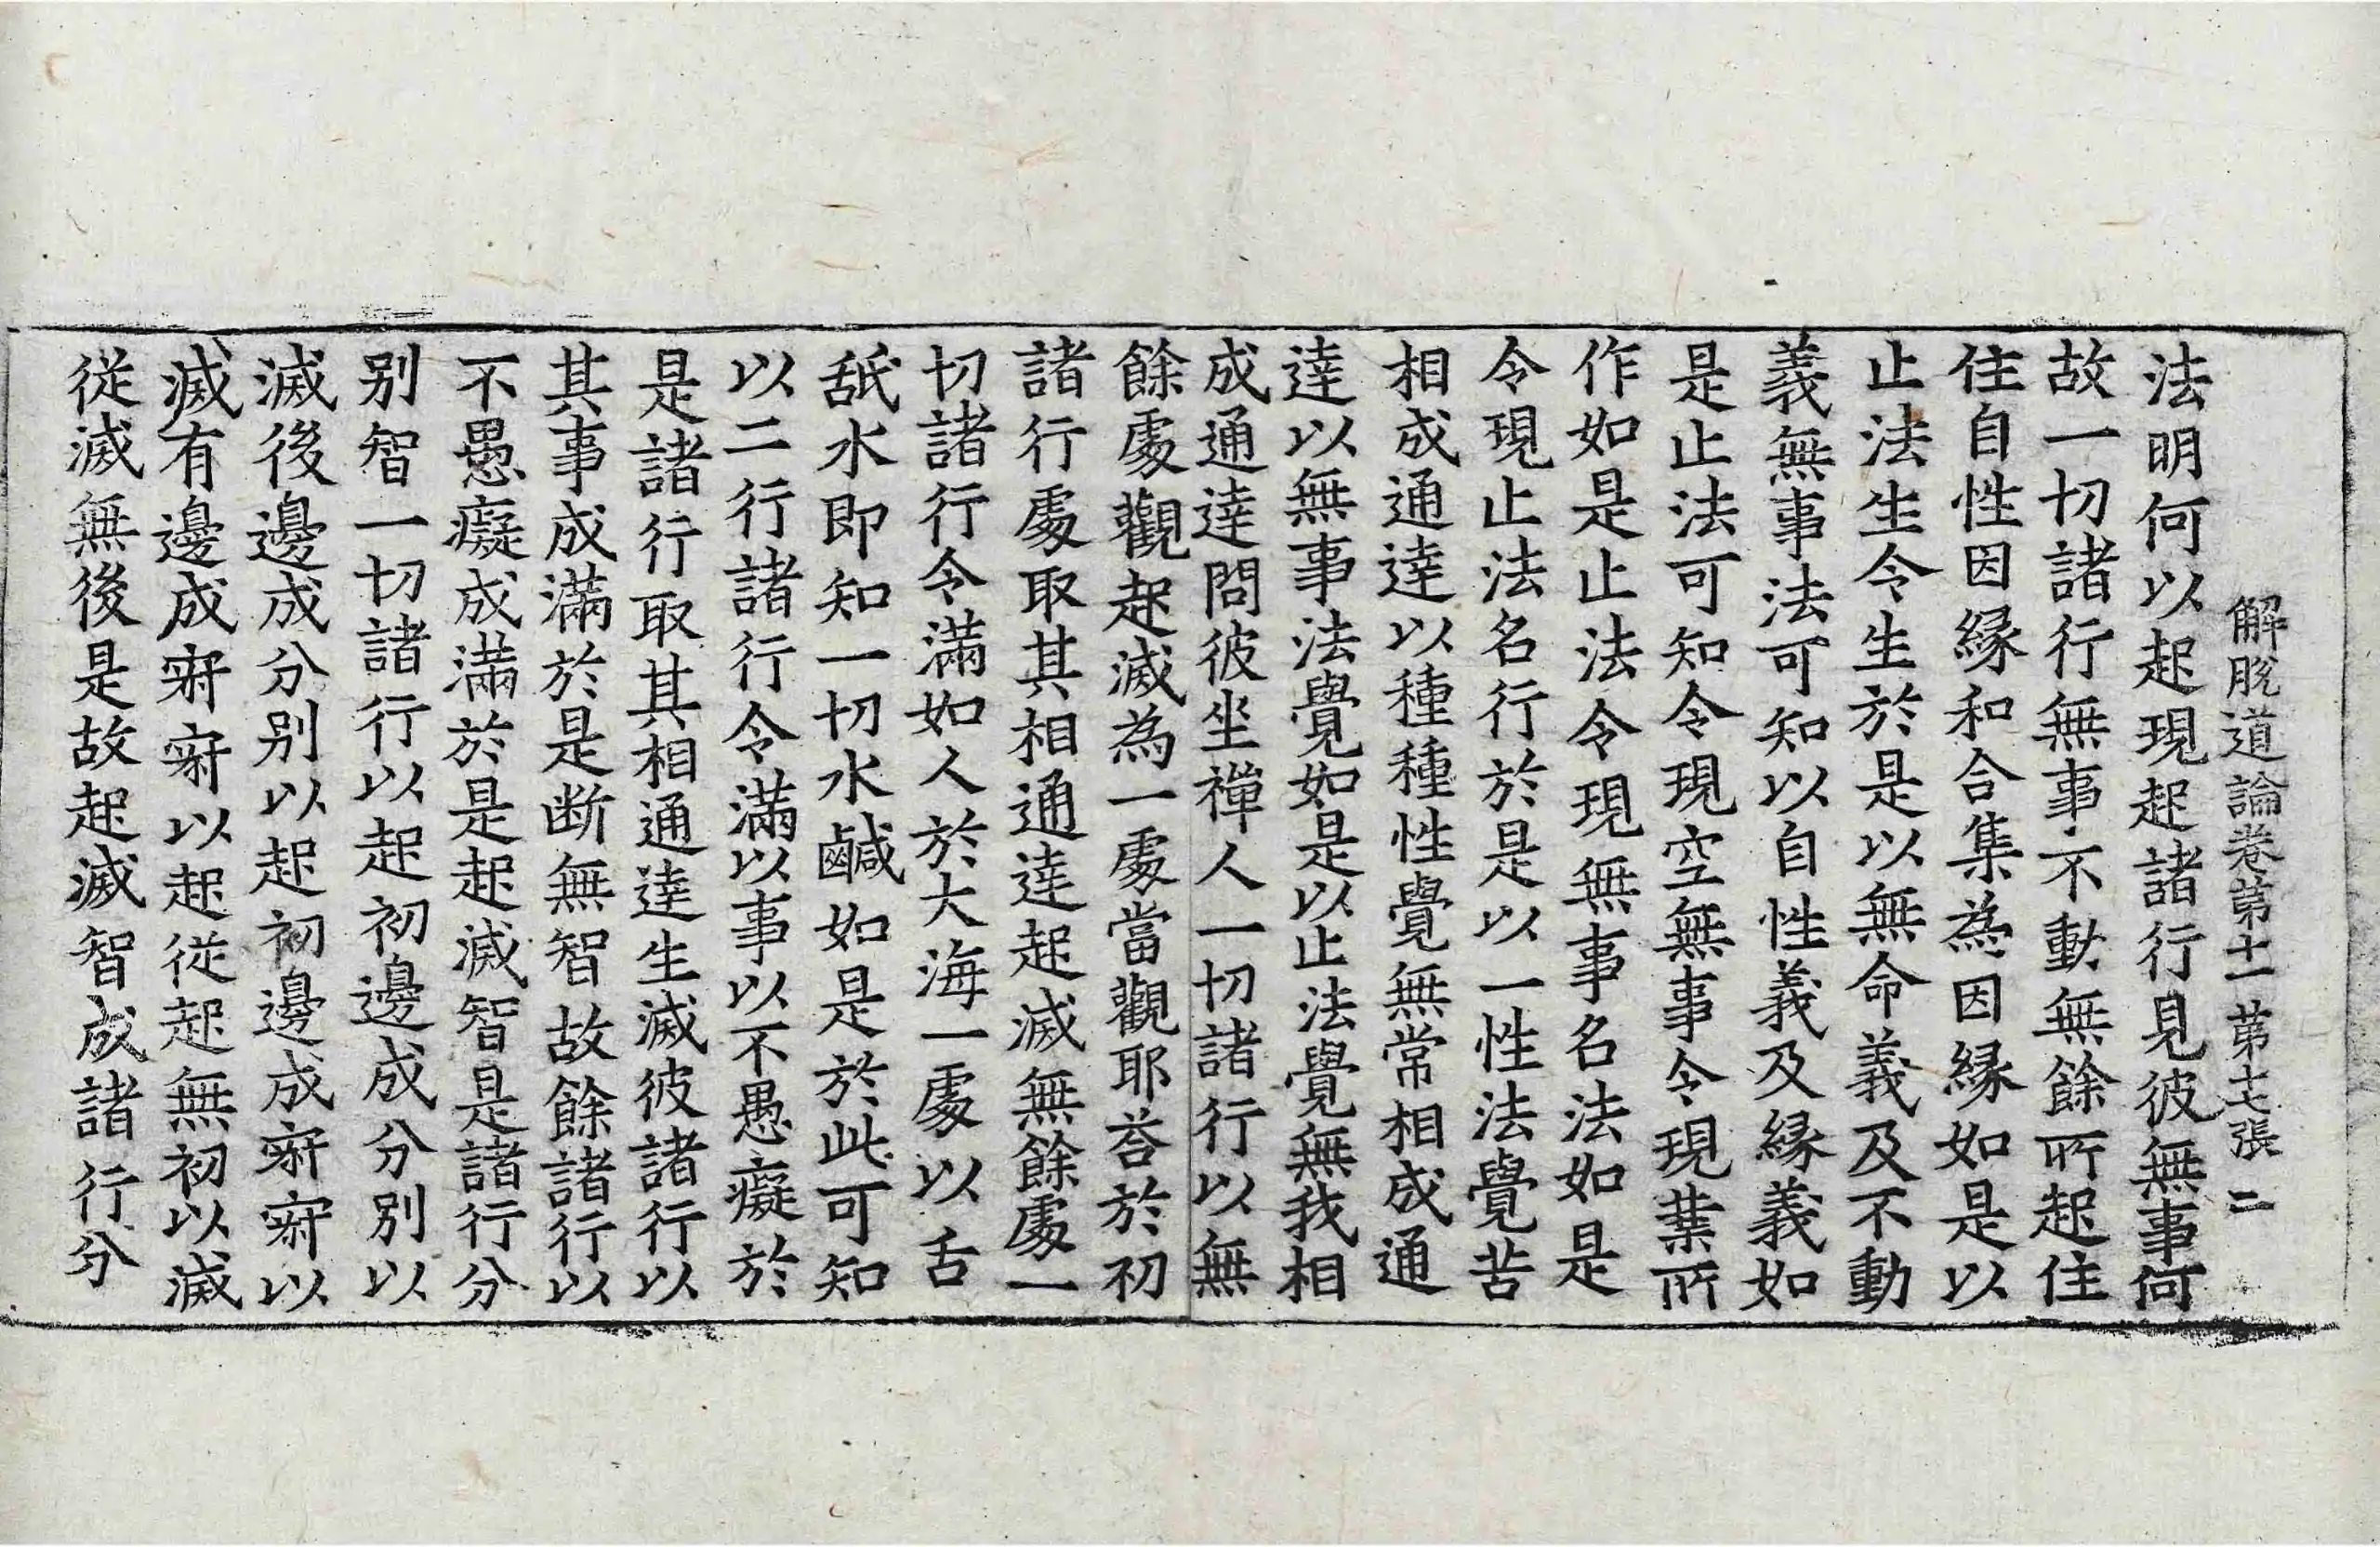 解脫道論卷第十一　第七張　二
法明何以起現起諸行見彼無事何
故一切諸行無事不動無餘所起住
住自性因緣和合集為因緣如是以
止法生令生於是以無命義及不動
義無事法可知以自性義及緣義如
是止法可知令現空無事令現業所
作如是止法令現無事名法如是
令現止法名行於是以一性法覺苦
相成通達以種種性覺無常相成通
達以無事法覺如是以止法覺無我相
成通達問彼坐禪人一切諸行以無
餘處觀起滅為一處當觀耶荅於初
諸行處取其相通達起滅無餘處一
切諸行令滿如人於大海一處以舌
舐水即知一切水鹹如是於此可知
以二行諸行令滿以事以不愚癡於
是諸行取其相通達生滅彼諸行以
其事成滿於是断無智故餘諸行以
不愚癡成滿於是起滅智是諸行分
別智一切諸行以起初邊成分別以
滅後邊成分別以起初邊成寂寂以
滅有邊成寂寂以起從起無初以滅
從滅無後是故起滅智成諸行分